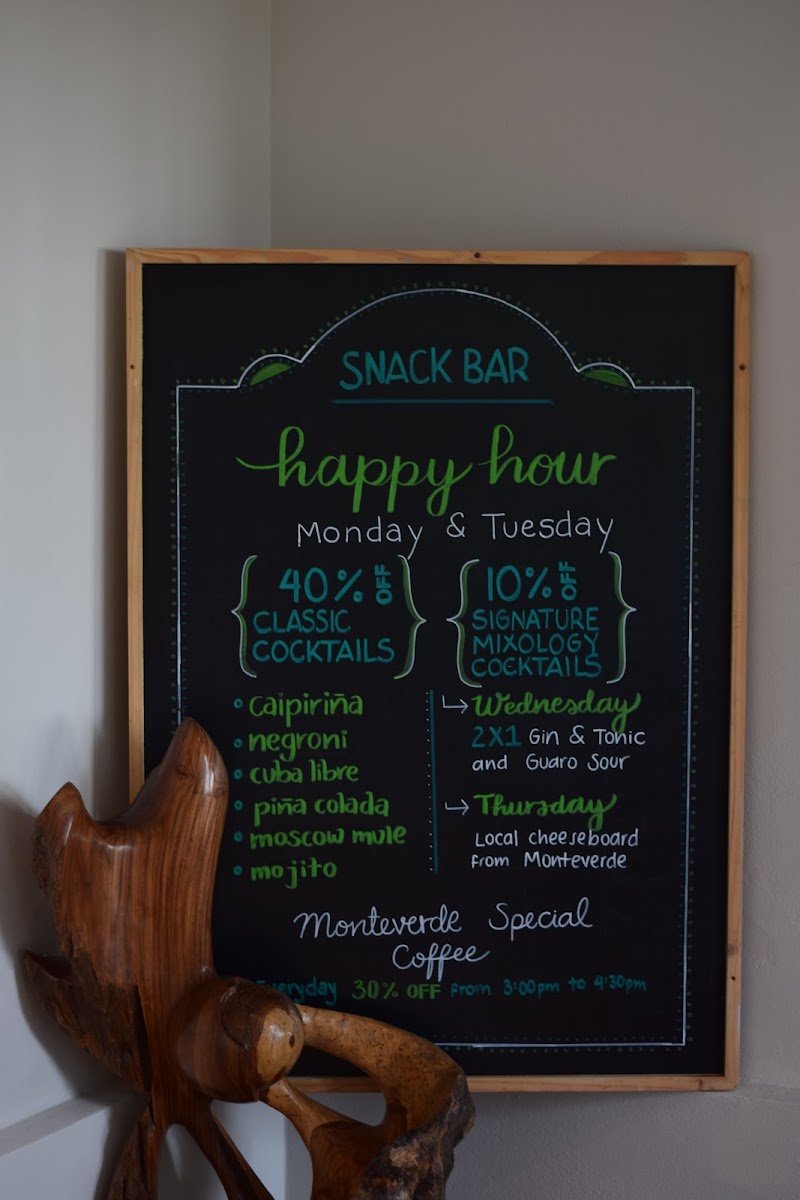 SNACK BAR
happy hour
Monday & Tuesday
40% OFF
CLASSIC
COCKTAILS
10% OFF
SIGNATURE
MIXOLOGY
COCKTAILS
caipiriña
negroni
cuba libre
piña colada
moscow mule
mojito
Wednesday
2X1 Gin & Tonic
and Guaro Sour
Thursday
Local cheeseboard
from Monteverde
Monteverde Special
Coffee
Everyday 30% OFF from 3:00pm to 4:30pm